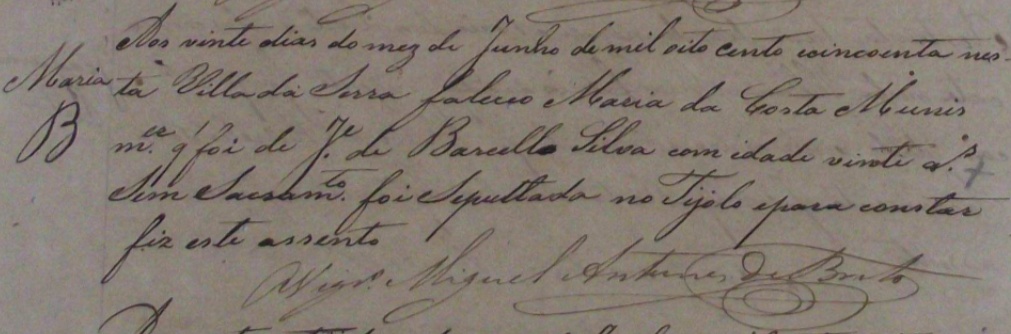 Aos vinte dias do mez de Junho de mil oito cento e cincoenta nes-
Maria ta Villa da Serra faleceo Maria da Costa Munis
B m.er q' foi de J.e de Barcello Silva com idade vinte a.s
Sem Sacram.to foi Sepultada no Tijolo e para constar
fiz este assento
O Vigr.o Miguel Antunes de Brito